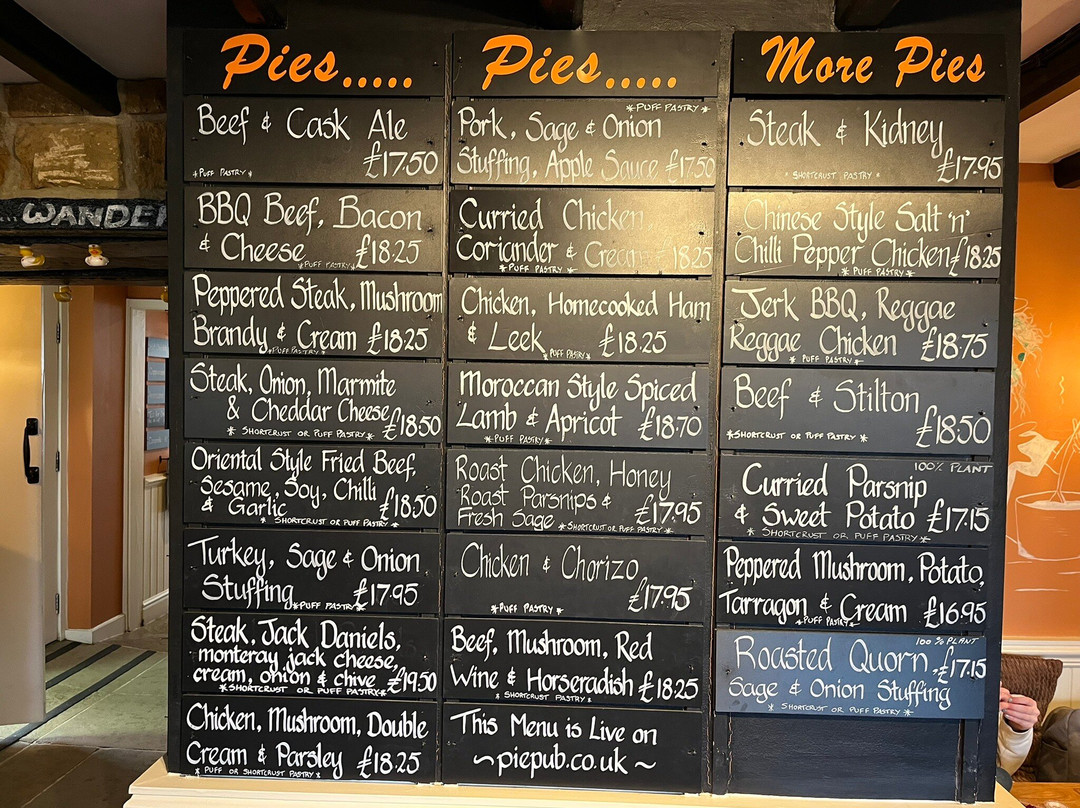 WANDE
Pies.....
Beef & Cask Ale
£17.50
*PUFF PASTRY*
BBQ Beef, Bacon
& Cheese £18.25
*PUFF PASTRY*
Peppered Steak, Mushroom
Brandy & Cream £18.25
*PUFF PASTRY*
Steak, Onion, Marmite
& Cheddar Cheese £18.50
* SHORTCRUST OR PUFF PASTRY *
Oriental Style Fried Beef,
Sesame, Soy, Chilli
& Garlic £18.50
* SHORTCRUST OR PUFF PASTRY *
Turkey, Sage & Onion
Stuffing £17.95
*PUFF PASTRY*
Steak, Jack Daniels,
monteray jack cheese,
cream, onion & chive £19.50
*SHORTCRUST OR PUFF PASTRY*
Chicken, Mushroom, Double
Cream & Parsley £18.25
* PUFF OR SHORTCRUST PASTRY *
Pies.....
*PUFF PASTRY*
Pork, Sage & Onion
Stuffing, Apple Sauce £17.50
Curried Chicken
Coriander & Cream 18.25
*PUFF PASTRY *
Chicken, Homecooked Ham
& Leek £18.25
*PUFF PASTRY*
Moroccan Style Spiced
Lamb & Apricot £18.70
*PUFF PASTRY*
Roast Chicken, Honey
Roast Parsnips &
Fresh Sage £17.95
*SHORTCRUST OR PUFF PASTRY*
Chicken & Chorizo
£17.95
*PUFF PASTRY *
Beef, Mushroom, Red
Wine & Horseradish £18.25
* SHORTCRUST PASTRY *
This Menu is Live on
~piepub.co.uk ~
More Pies
Steak & Kidney
£17.95
* SHORTCRUST PASTRY *
Chinese Style Salt 'n'
Chilli Pepper Chicken £18.25
* PUFF PASTRY *
Jerk BBQ, Reggae
Reggae Chicken £18.75
* PUFF PASTRY *
Beef & Stilton
£18.50
*SHORTCRUST OR PUFF PASTRY *
100% PLANT
Curried Parsnip
& Sweet Potato £17.15
* SHORTCRUST OR PUFF PASTRY *
Peppered Mushroom, Potato,
Tarragon & Cream £16.95
*PUFF PASTRY*
100% PLANT
Roasted Quorn, £17.15
Sage & Onion Stuffing
* SHORTCRUST OR PUFF PASTRY *